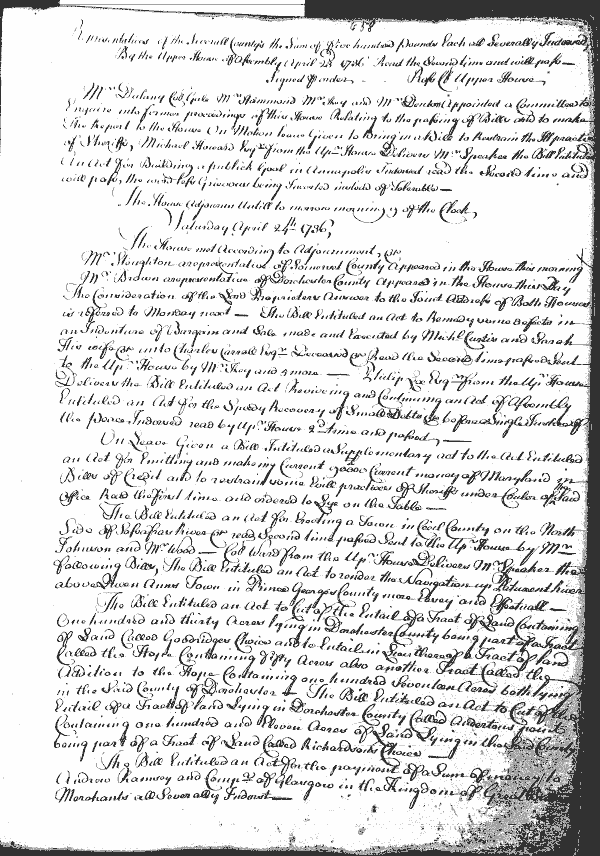 658
Representatives of the Severall County's the Sum of five hundred pounds Each all Severally Indorsed,
By the Upper House of Assembly April 23 1736. Read the Second time and will pass
Signed Order Upper House
Mr. Dulany Coll Gale Mr Hammond Mr Key and Mr Denton Appointed a Committee to
Enquire into former proceedings of this House Relating to the passing of Bills and to make
the Report to the House On Motion leave Given to bring in a Bill to Restrain the Ill practices
of Sheriffs, Michael Howard Esqr from the Upr House Delivers Mr Speaker the Bill Entituled
An Act for Building a publick Goal in Annapolis Indorsed read the Second time and
will pass, the word less Grievous being Inserted instead of Tolerable
The House Adjourns Untill to morrow morning of the Clock,
Saturday April 24th 1736,
The House met According to Adjournment, &c
Mr. Stoughton a representative of Somerset County Appeared in the House this morning
Mr. Brown a representative of Dorchester County Appeared in the House this Day
The Consideration of the Lord Proprietors Answer to the Joint Address of Both Houses
is referred to Monday next — The Bill Entituled an Act to Remedy some defects in
an Indenture of Bargain and Sale made and Executed by Michl Curtis and Sarah
His wife &c unto Charles Carroll Esqr Deceased &c Read the Second time passed Sent
to the Upr House by Mr Key and 3 more — Philip Lee Esqr from the Upr House
Delivers the Bill Entituled an Act Reviving and Continuing an Act of Assembly
Entituled an Act for the Speedy Recovery of Small Debts &c before a Single Justice of
the peace Indorsed read by Upr House 2d time and passed,
On Leave Given a Bill Intituled a Supplementary act to the Act Entituled
an Act for Emitting and making Current 90000 Current money of Maryland in
Bills of Credit and to restrain some Evill practices of Sheriffs under Couler of their
Office Read the first time and ordered to Lye on the Table
The Bill Entituled an Act for Erecting a Town in Cecil County on the North
Side of Sassafras River &c read Second time passed Sent to the Upr House by Mr
Johnson and Mr. Wood — Coll Ward from the Upr House Delivers Mr Speaker the
following Bills, The Bill Entituled an Act to render the Navigation up Patuxent River
above Queen Anns Town in Prince Georges County more Easey and Effectuall
The Bill Entituled an Act to Cut of the Entail of a Tract of Land Containing
One hundred and thirty Acres lying in Dorchester County being part of a Tract
of Land Called Goodridges Choice and to Entail in Lieu thereof a Tract of land
Called the Hope Containing fifty Acres also another Tract Called the
Addition to the Hope Containing one hundred Seventeen Acres both lying
in the Said County of Dorchester — The Bill Entituled an Act to Cut of the
Entail of a Tract of land Lying in Dorchester County Called Addertons point
Containing one hundred and Eleven Acres of Land Lying in the said County
being part of a Tract of Land Called Richardsons Choice
The Bill Entituled an Act for the payment of a Sum of money to
Andrew Ramsey and Compa of Glasgow in the Kingdom of Great
Merchants all Severally Indorst